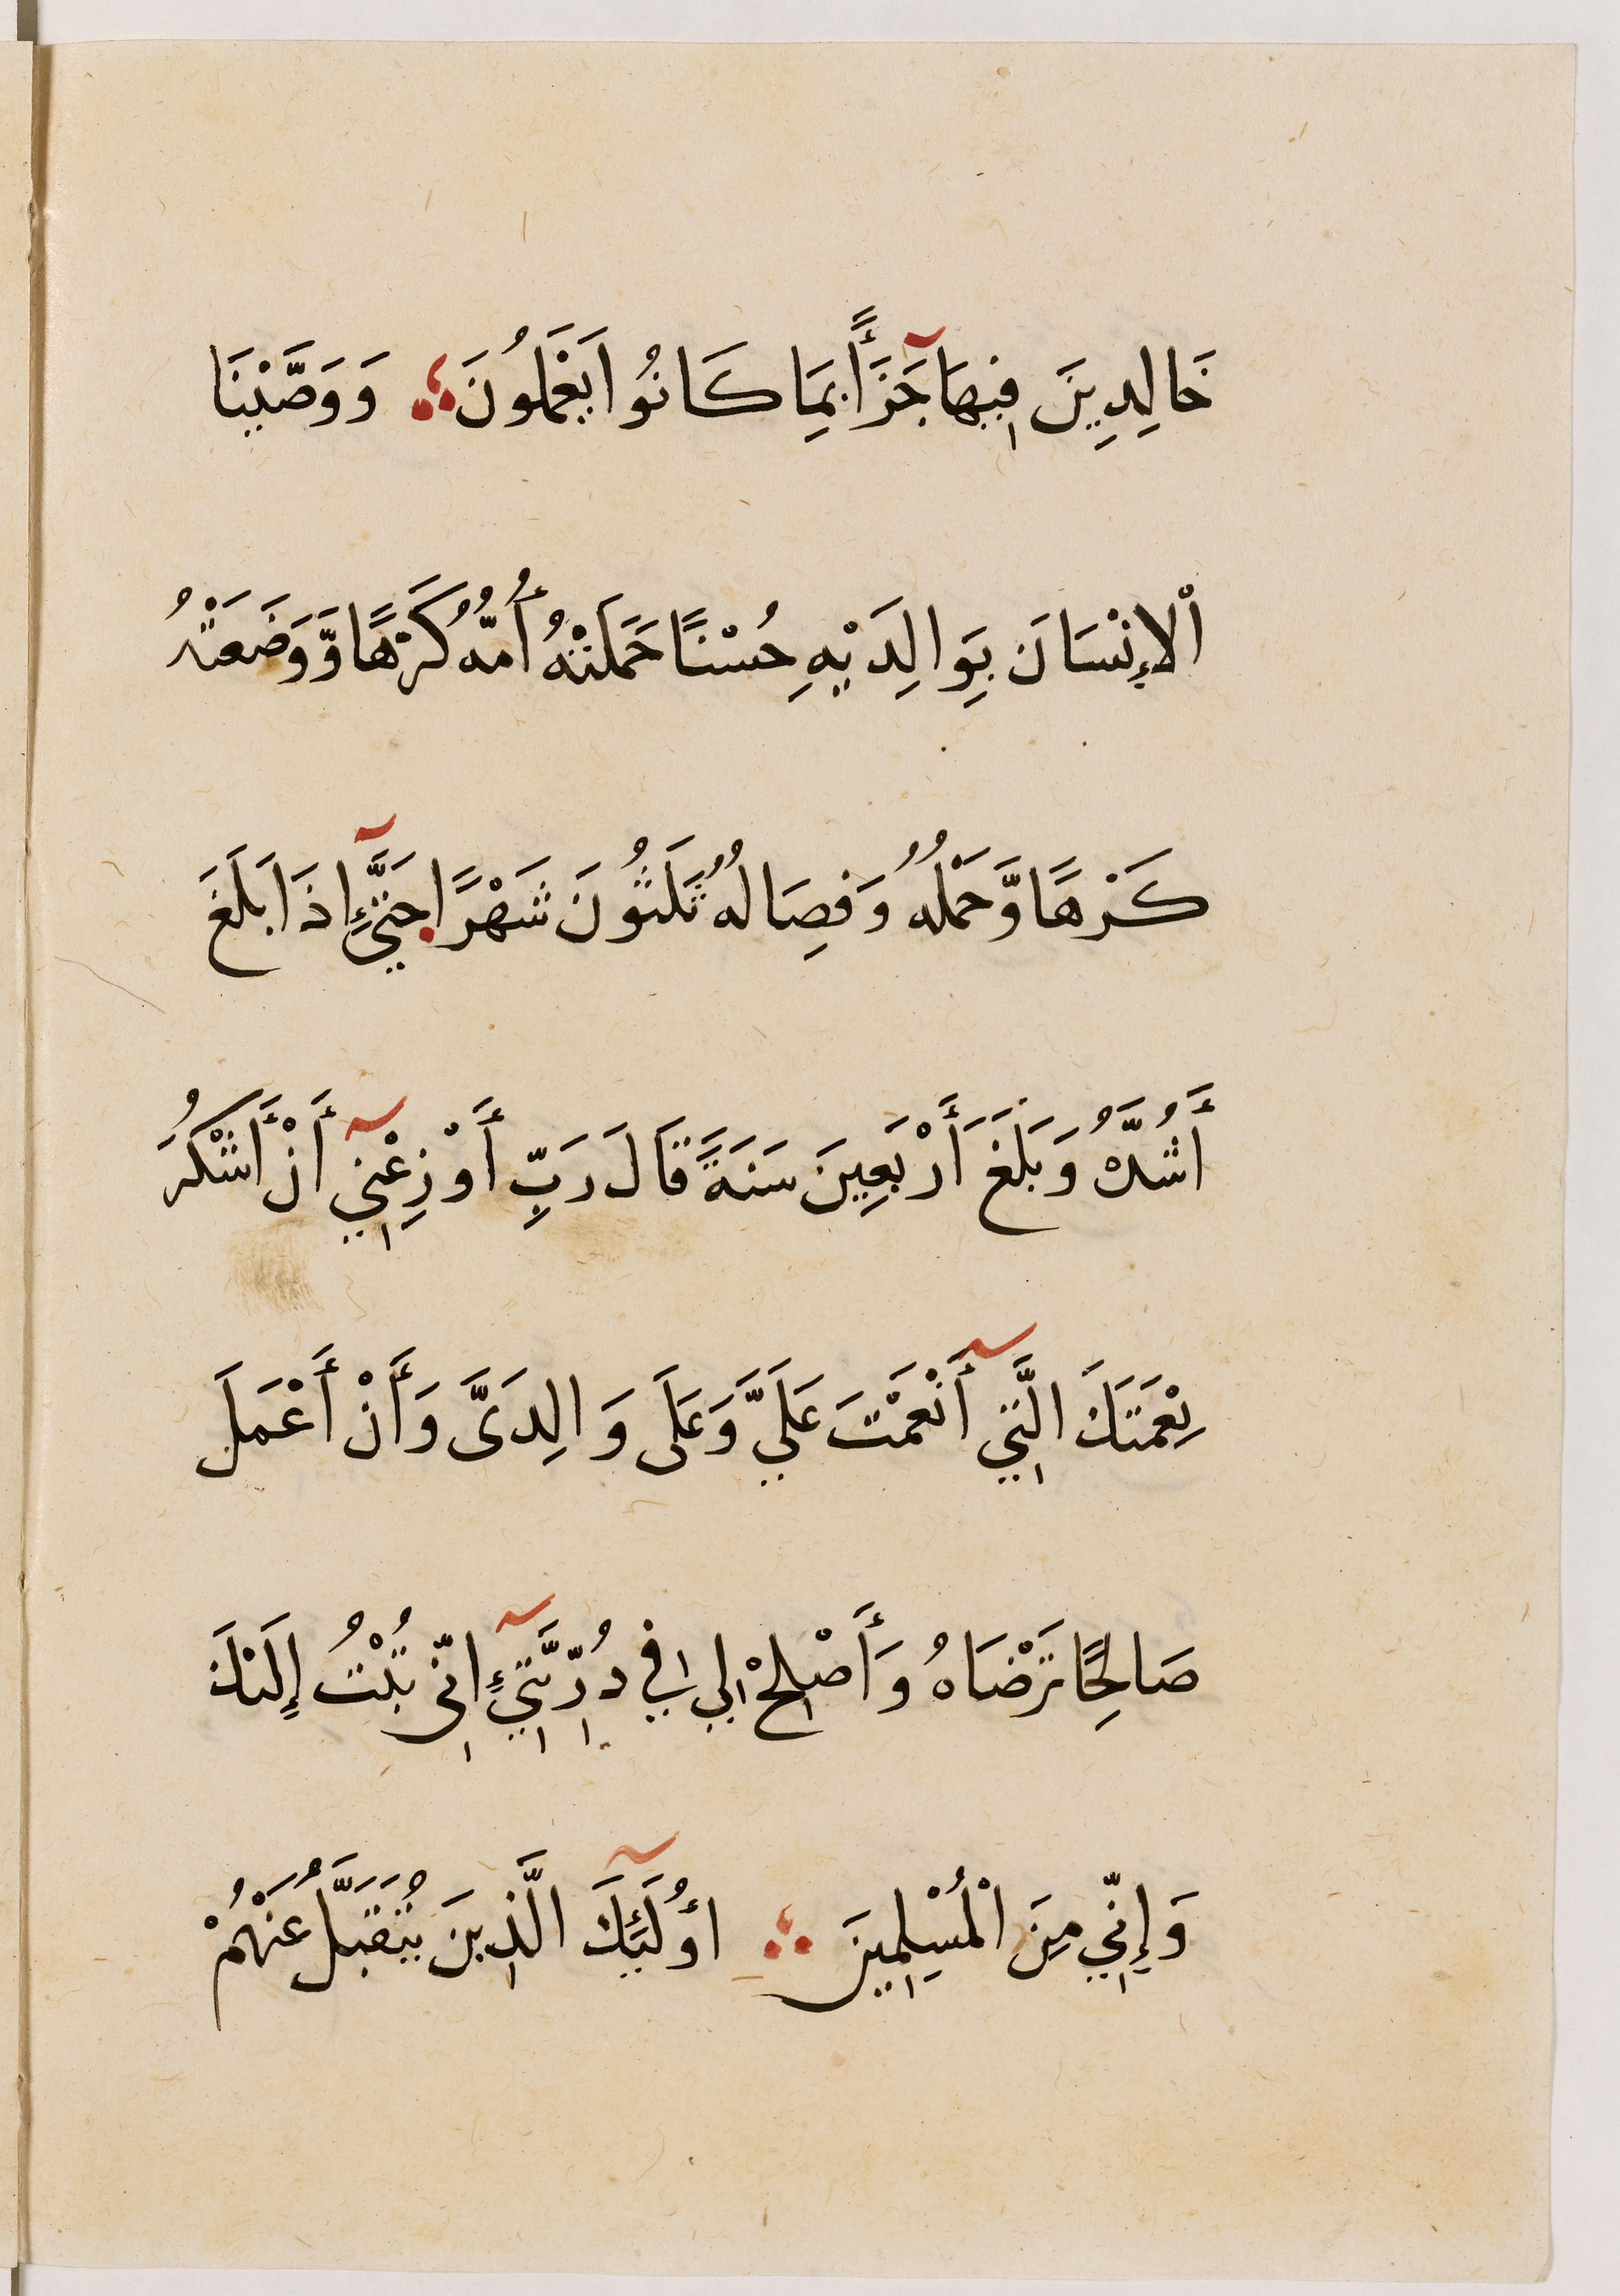 خَالِدِينَ فِيهَا جَزَآًٔ بِمَا كَانُوا يَعْمَلُونَ ؞ وَوَصَّيْنَا
اْلْإِنْسَانَ بِوَالِدَيْهِ حُسْنًا حَمَلَتْهُ أُمُّهُ كَرْهًا وَّوَضَعَتْهُ
كَرْهًا وَّحَمْلُهُ وَفِصَالُهُ ثَلَثُونَ شَهْرًا حَتَّىٰٓ اِذَا بَلَغَ
أَشُدَّهُ وَبَلَغَ أَرْبَعِينَ سَنَةً قَالَ رَبِّ أَوْزِعْنِيٓ أَنْ أَشْكُرَ
نِعْمَتَكَ الَّتِيٓ أَنْعَمْتَ عَلَيَّ وَعَلَى وَالِدَىَّ وَأَنْ أَعْمَلَ
صَالِحًا تَرْضَاهُ وَأَصْلِحْ لِي فِي ذُرِّيَّتِيٓ اِنِّى تُبْتُ إِلَيْكَ
وَإِنِّي مِنَ الْمُسْلِمِينَ ؞ اُولَٓئِكَ الَّذِينَ يُتَقَبَّلُ عَنْهُمْ